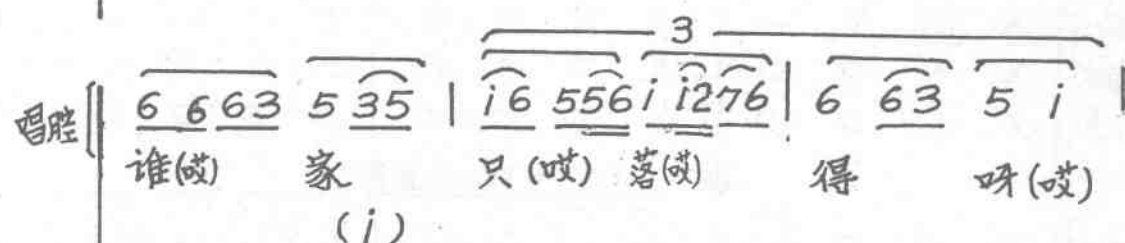 3
唱腔 6 6 6 3 5 3 5 | i 6 5 5 6 i i 2 7 6 | 6 6 3 5 i |
谁(哎) 家 只(哎) 落(哎) 得 呀(哎)
(i)